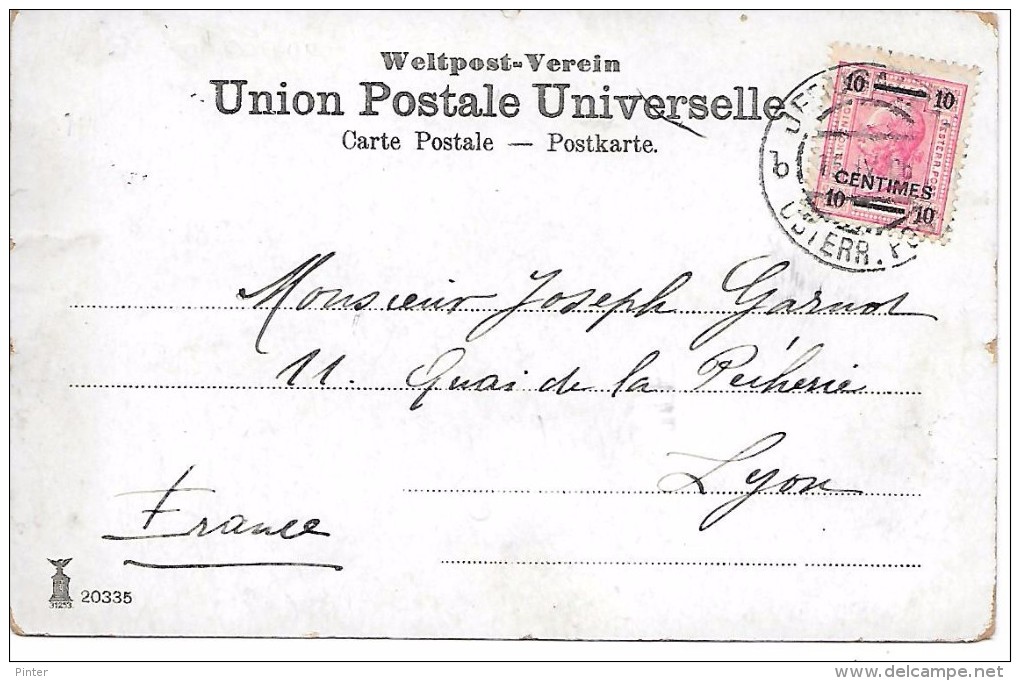 Weltpost-Verein
Union Postale Universelle
Carte Postale — Postkarte.
10 10
CENTIMES
10 10
ÖSTERR. PO
b
Monsieur Joseph Garnot
11. Quai de la Pêcherie
Lyon
France
31253
20335
Pinter
delcampe.net